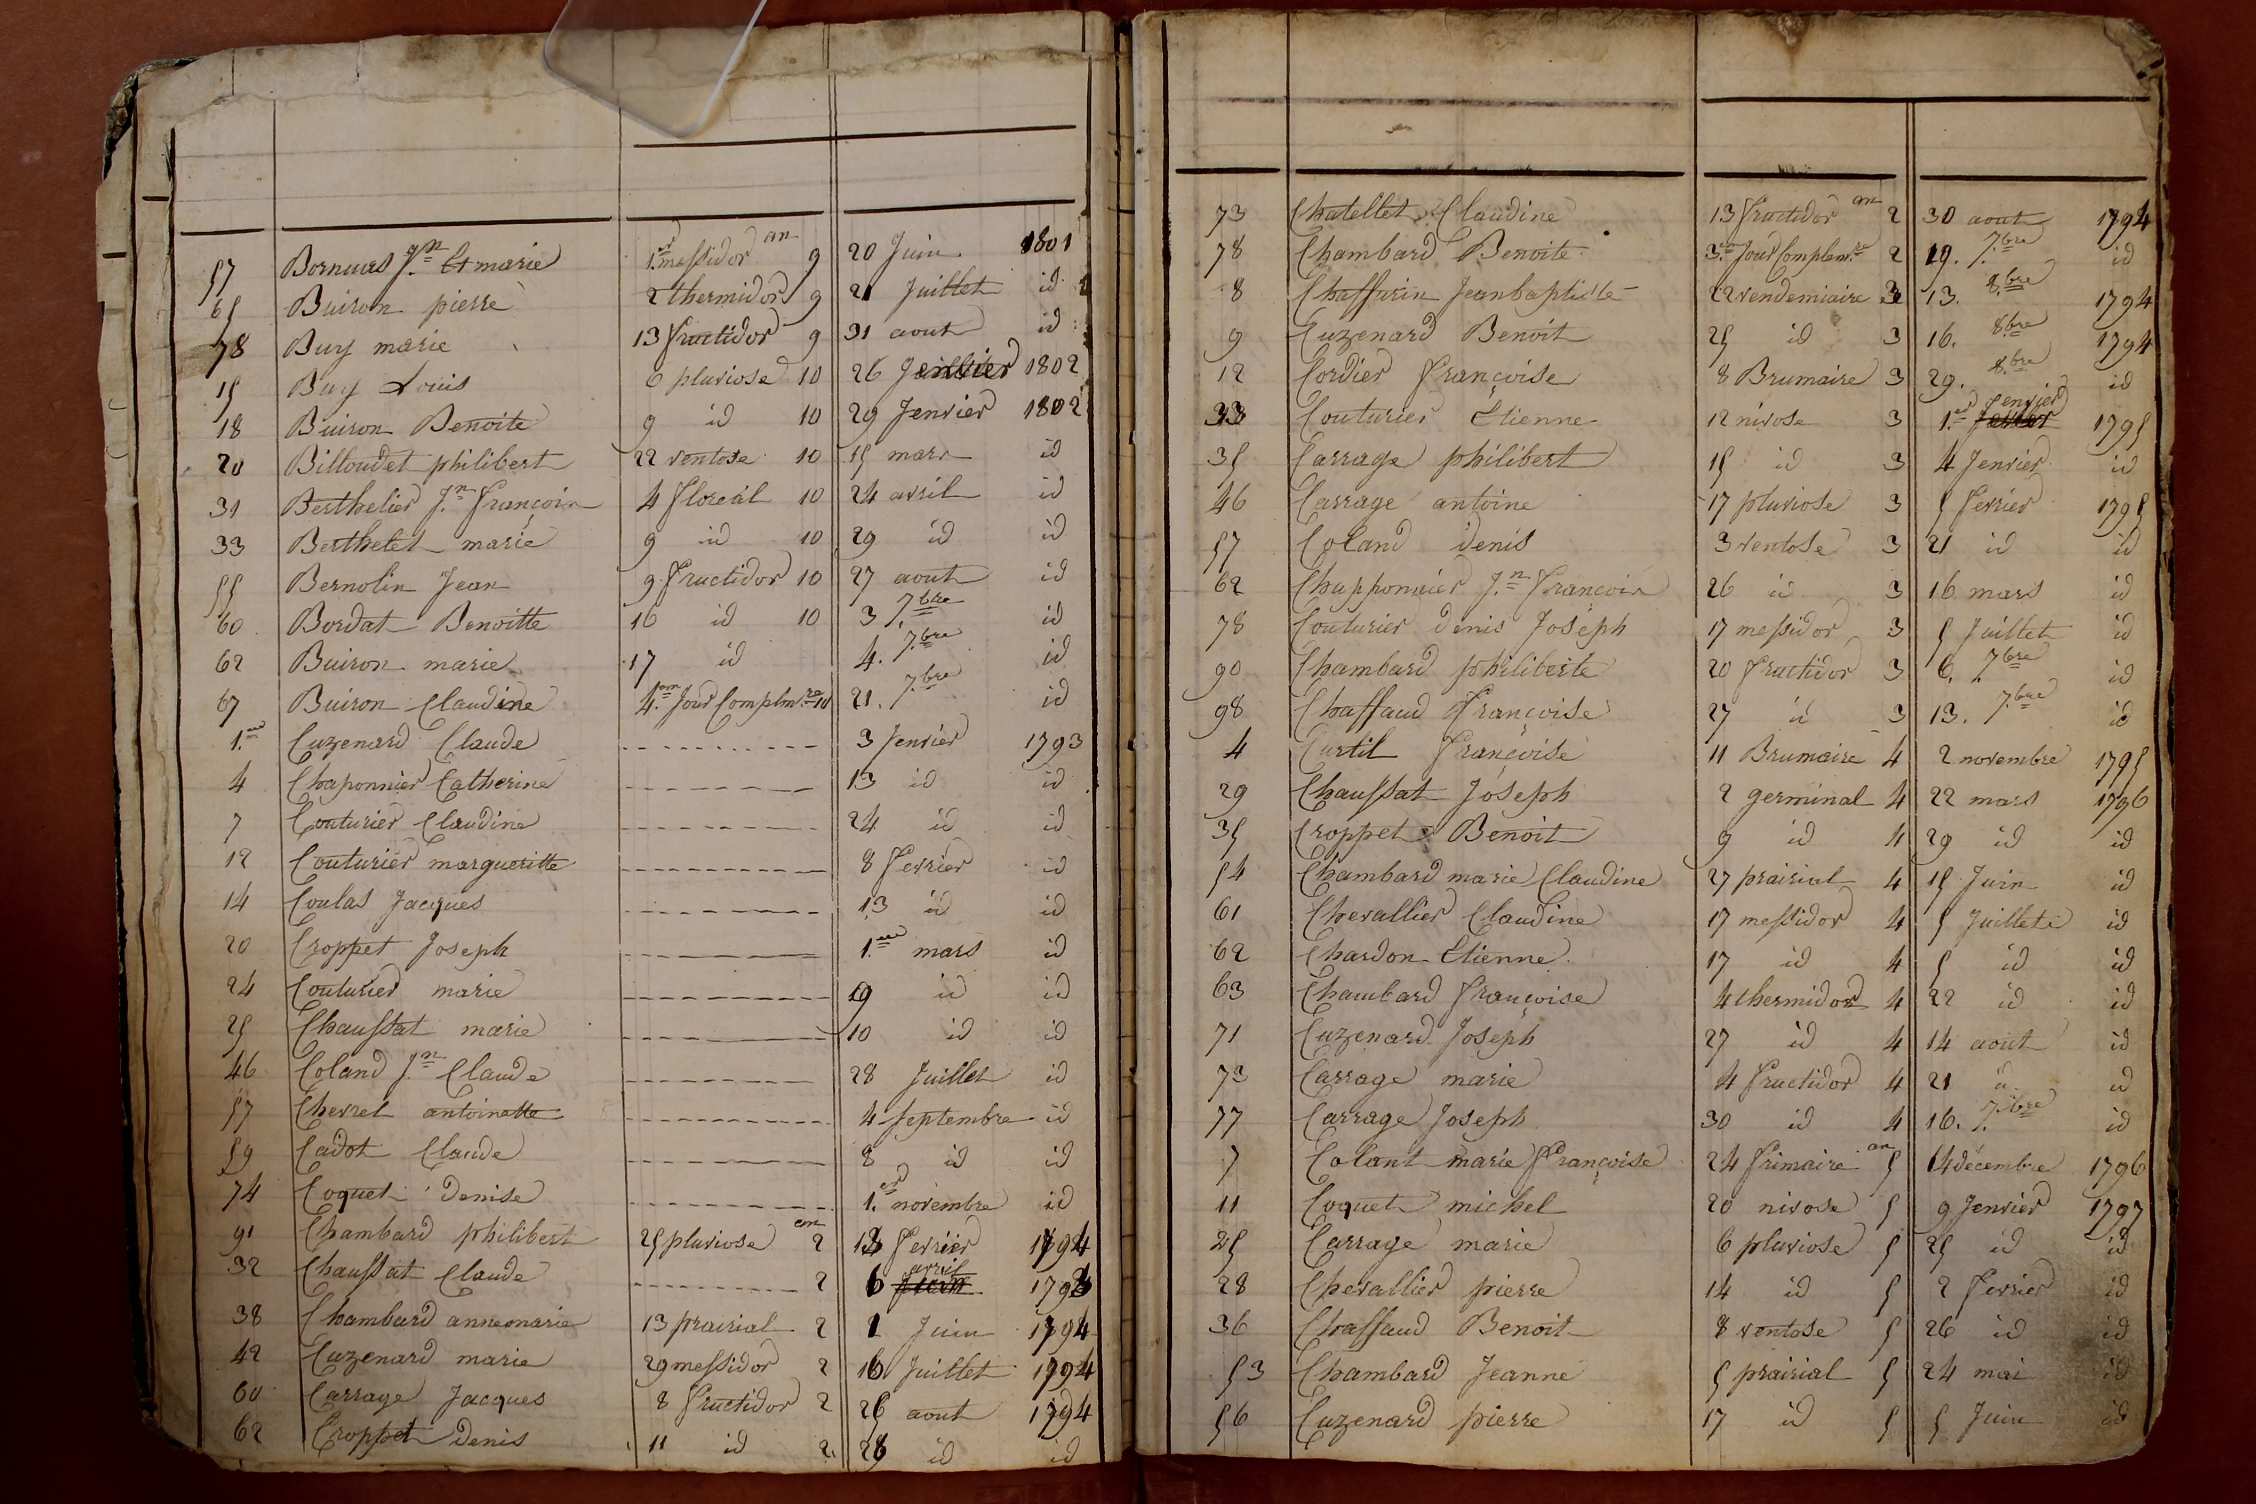 57 Bornuas J.n Et marie 1.er messidor an 9 20 Juin 1801
65 Buiron pierre 2 thermidor 9 21 Juillet id
78 Buy marie 13 fructidor 9 31 aout id
15 Buy Louis 6 pluviose 10 26 Jenvier 1802
18 Buiron Benoite 9 id 10 29 Jenvier 1802
20 Billoudet philibert 22 ventose 10 15 mars id
31 Berthelier J.n françois 4 floreal 10 24 avril id
33 Berthelet marie 9 id 10 29 id id
55 Bernolin Jean 9 fructidor 10 27 aout id
60 Bordat Benoitte 16 id 10 3 7.bre id
62 Buiron marie 17 id 4. 7.bre id
67 Buiron Claudine 4.em Jour Complm.re 10 21. 7.bre id
1.er Cuzenard Claude 3 Jenvier 1793
4 Chaponnier Catherine 13 id id
7 Couturier Claudine 24 id id
12 Couturier margueritte 8 fevrier id
14 Coulas Jacques 13 id id
20 Croppet Joseph 1.er mars id
24 Couturier marie 19 id id
25 Chaussat marie 10 id id
46 Coland J.n Claude 28 Juillet id
57 Chevrel antoinette 4 septembre id
59 Cadot Claude 8 id id
74 Coquet Denise 1.er novembre id
91 Chambard philibert 25 pluviose an 2 13 fevrier 1794
32 Chaussat Claude 2 6 avril
38 Chambard annemarie 13 prairial 2 1 Juin 1794
42 Cuzenard marie 29 messidor 2 16 Juillet 1794
60 Carrage Jacques 8 fructidor 2 25 aout 1794
62 Croppet Denis 11 id 2 28 id id
73 Chatellet Claudine 13 fructidor an 2 30 aout 1794
78 Chambard Benoite 3.em Jour Complem.re 2 19. 7.bre id
8 Chaffurin Jeanbaptiste 22 vendemiaire 3 13. 8.bre 1794
9 Cuzenard Benoit 25 id 3 16. 8bre 1794
12 Cordier françoise 8 Brumaire 3 29. 8.bre id
33 Couturier Etienne 12 nivose 3 1.er Jenvier 1795
35 Carrage philibert 15 id 3 4 Jenvier id
46 Carrage antoine 17 pluviose 3 5 fevrier 1795
57 Coland denis 3 ventose 3 21 id id
62 Chapponnier J.n françois 26 id 3 16 mars id
78 Couturier denis Joseph 17 messidor 3 5 Juillet id
90 Chambard philiberte 20 fructidor 3 6. 7bre id
98 Chaffaud françoise 27 id 3 13. 7.bre id
4 Curtil françoise 11 Brumaire 4 2 novembre 1795
29 Chaussat Joseph 2 germinal 4 22 mars 1796
35 Croppet Benoit 9 id 4 29 id id
54 Chambard marie Claudine 27 prairial 4 15 Juin id
61 Chevallier Claudine 17 messidor 4 5 Juillet id
62 Chardon Etienne 17 id 4 5 id id
63 Chambard françoise 4 thermidor 4 22 id id
71 Cuzenard Joseph 27 id 4 14 aout id
73 Carrage marie 4 fructidor 4 21 id id
77 Carrage Joseph 30 id 4 16. 7.bre id
7 Colant marie françoise 24 frimaire an 5 14 décembre 1796
11 Coquet michel 20 nivose 5 9 Jenvier 1797
25 Carrage marie 6 pluviose 5 25 id id
28 Chevallier pierre 14 id 5 2 fevrier id
36 Chaffaud Benoit 8 ventose 5 26 id id
53 Chambard Jeanne 5 prairial 5 24 mai id
56 Cuzenard pierre 17 id 5 5 Juin id